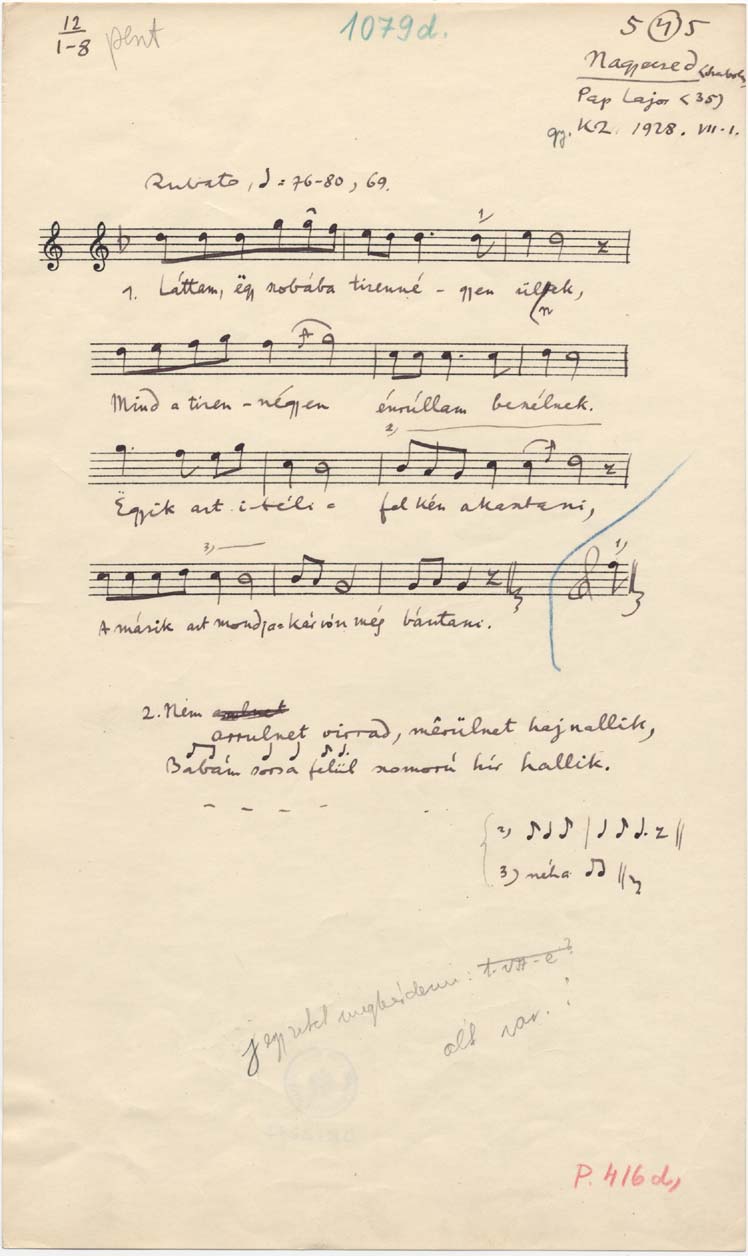 12
1-8
pent
1079d.
5 4 5
Nagyecsed (Szabolcs)
Pap Lajos (35)
gy. KZ. 1928. VII. 1.
Rubato, = 76-80, 69.
1)
1. Láttam, ëgy szobába tizenné - gyen ültek,
n
Mind a tizen - négyen énrúllam beszélnek.
2)
Ëgyik azt i - téli = fel kén akasztani,
3)
1)
A másik azt mondja = kár vón még bántani.
2. Nem
arrulnet virrad, mêrülnet hajnallik,
Babám sorsa felül szomorú hír hallik.
- - - -
2)
3) néha
jegyzetet megkérdezni: t. VII-e?
alt var. ?
P. 416d,